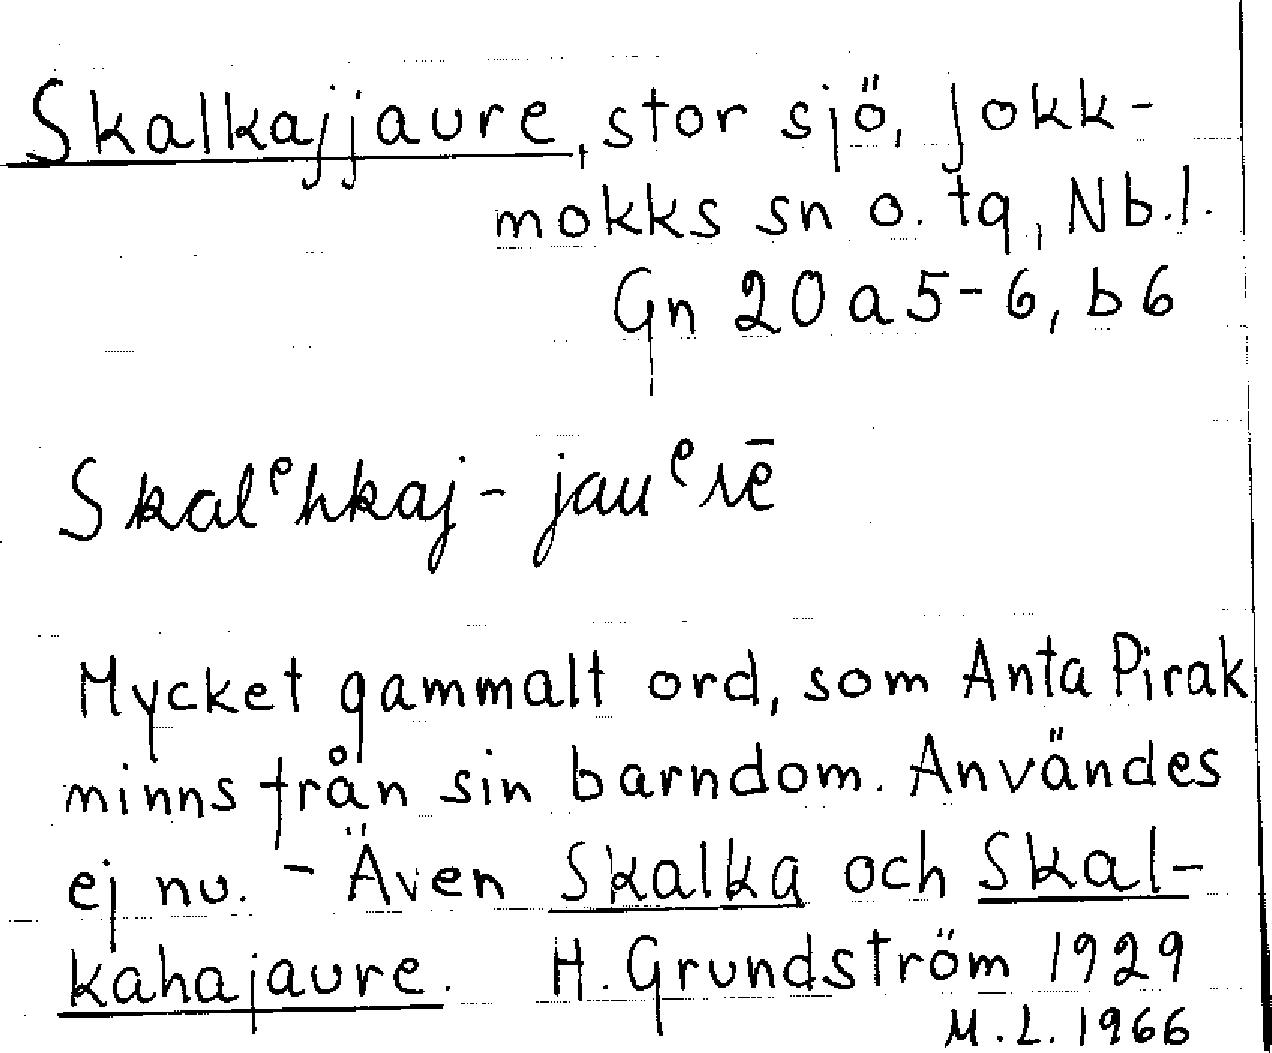 Skalkajjaure, stor sjö, Jokk-
mokks sn o. tg, Nb.l.
Gn 20 a 5-6, b 6
Skalᵉhkaj-jauᵉrē
Mycket gammalt ord, som Anta Pirak
minns från sin barndom. Användes
ej nu. - Även Skalka och Skal-
kahajaure. H. Grundström 1929
M.L. 1966